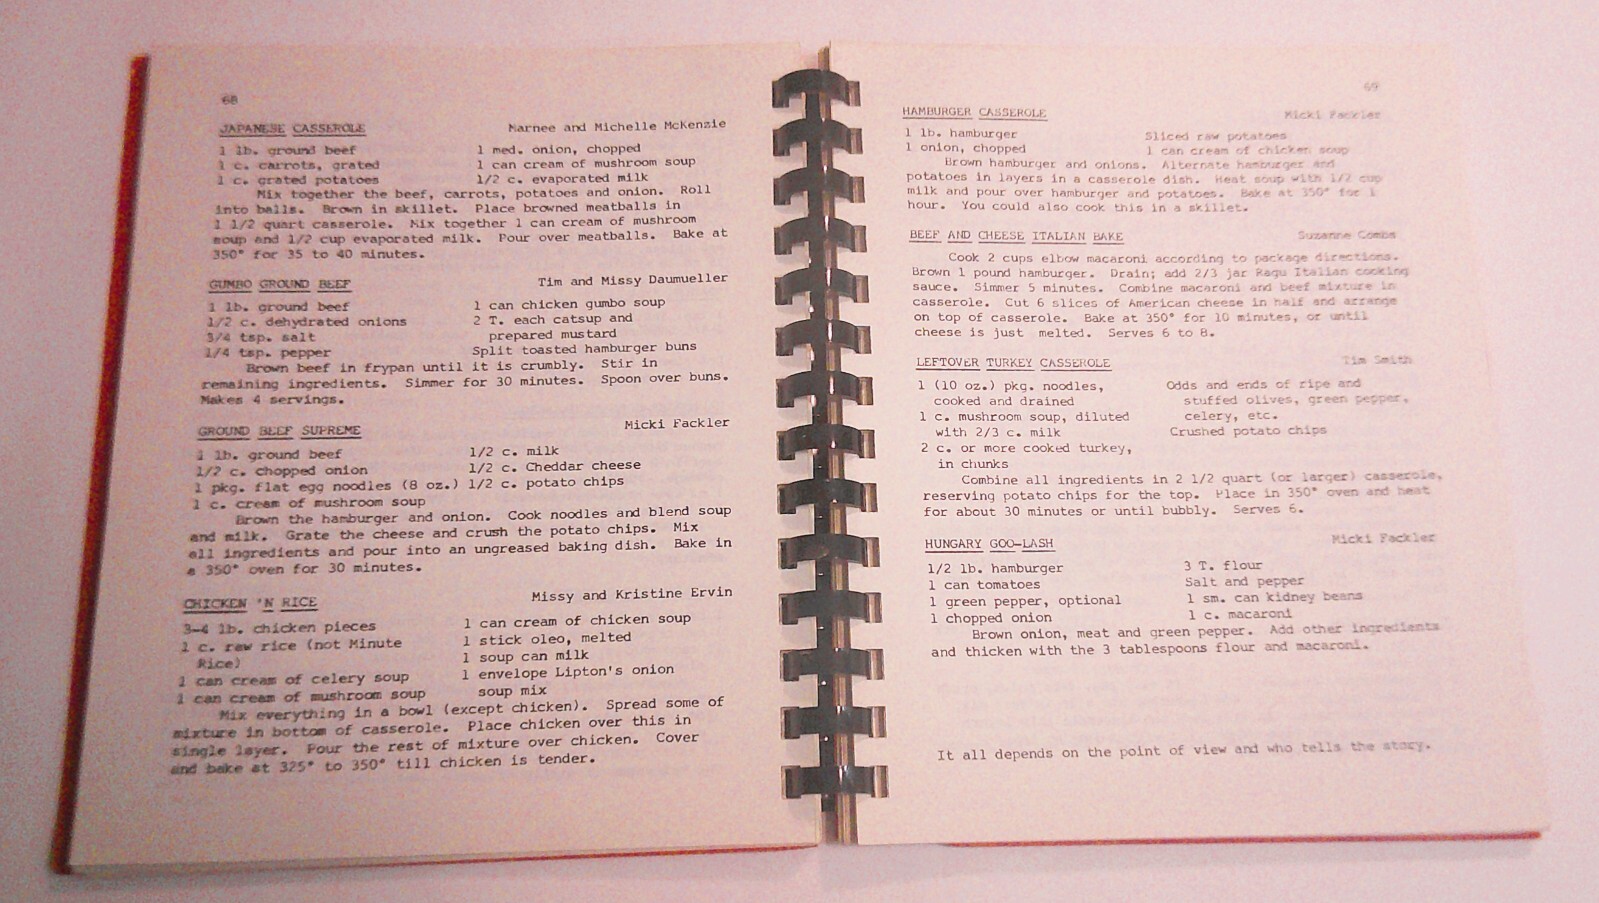 68
JAPANESE CASSEROLE Marnee and Michelle McKenzie
1 lb. ground beef 1 med. onion, chopped
1 c. carrots, grated 1 can cream of mushroom soup
1 c. grated potatoes 1/2 c. evaporated milk
Mix together the beef, carrots, potatoes and onion. Roll
into balls. Brown in skillet. Place browned meatballs in
1 1/2 quart casserole. Mix together 1 can cream of mushroom
soup and 1/2 cup evaporated milk. Pour over meatballs. Bake at
350° for 35 to 40 minutes.
GUMBO GROUND BEEF Tim and Missy Daumueller
1 lb. ground beef 1 can chicken gumbo soup
1/2 c. dehydrated onions 2 T. each catsup and
3/4 tsp. salt prepared mustard
1/4 tsp. pepper Split toasted hamburger buns
Brown beef in frypan until it is crumbly. Stir in
remaining ingredients. Simmer for 30 minutes. Spoon over buns.
Makes 4 servings.
GROUND BEEF SUPREME Micki Fackler
1 lb. ground beef 1/2 c. milk
1/2 c. chopped onion 1/2 c. Cheddar cheese
1 pkg. flat egg noodles (8 oz.) 1/2 c. potato chips
1 c. cream of mushroom soup
Brown the hamburger and onion. Cook noodles and blend soup
and milk. Grate the cheese and crush the potato chips. Mix
all ingredients and pour into an ungreased baking dish. Bake in
a 350° oven for 30 minutes.
CHICKEN 'N RICE Missy and Kristine Ervin
3-4 lb. chicken pieces 1 can cream of chicken soup
1 c. raw rice (not Minute 1 stick oleo, melted
Rice) 1 soup can milk
1 can cream of celery soup 1 envelope Lipton's onion
1 can cream of mushroom soup soup mix
Mix everything in a bowl (except chicken). Spread some of
mixture in bottom of casserole. Place chicken over this in
single layer. Pour the rest of mixture over chicken. Cover
and bake at 325° to 350° till chicken is tender.
69
HAMBURGER CASSEROLE Micki Fackler
1 lb. hamburger Sliced raw potatoes
1 onion, chopped 1 can cream of chicken soup
Brown hamburger and onions. Alternate hamburger and
potatoes in layers in a casserole dish. Heat soup with 1/2 cup
milk and pour over hamburger and potatoes. Bake at 350° for 1
hour. You could also cook this in a skillet.
BEEF AND CHEESE ITALIAN BAKE Suzanne Combs
Cook 2 cups elbow macaroni according to package directions.
Brown 1 pound hamburger. Drain; add 2/3 jar Ragu Italian cooking
sauce. Simmer 5 minutes. Combine macaroni and beef mixture in
casserole. Cut 6 slices of American cheese in half and arrange
on top of casserole. Bake at 350° for 10 minutes, or until
cheese is just melted. Serves 6 to 8.
LEFTOVER TURKEY CASSEROLE Tim Smith
1 (10 oz.) pkg. noodles, Odds and ends of ripe and
cooked and drained stuffed olives, green pepper,
1 c. mushroom soup, diluted celery, etc.
with 2/3 c. milk Crushed potato chips
2 c. or more cooked turkey,
in chunks
Combine all ingredients in 2 1/2 quart (or larger) casserole,
reserving potato chips for the top. Place in 350° oven and heat
for about 30 minutes or until bubbly. Serves 6.
HUNGARY GOO-LASH Micki Fackler
1/2 lb. hamburger 3 T. flour
1 can tomatoes Salt and pepper
1 green pepper, optional 1 sm. can kidney beans
1 chopped onion 1 c. macaroni
Brown onion, meat and green pepper. Add other ingredients
and thicken with the 3 tablespoons flour and macaroni.
It all depends on the point of view and who tells the story.